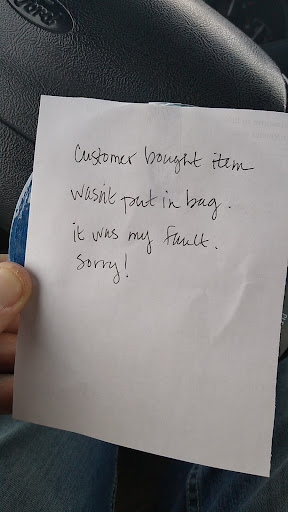 Ford
Customer bought item
wasn't put in bag.
it was my fault.
Sorry!